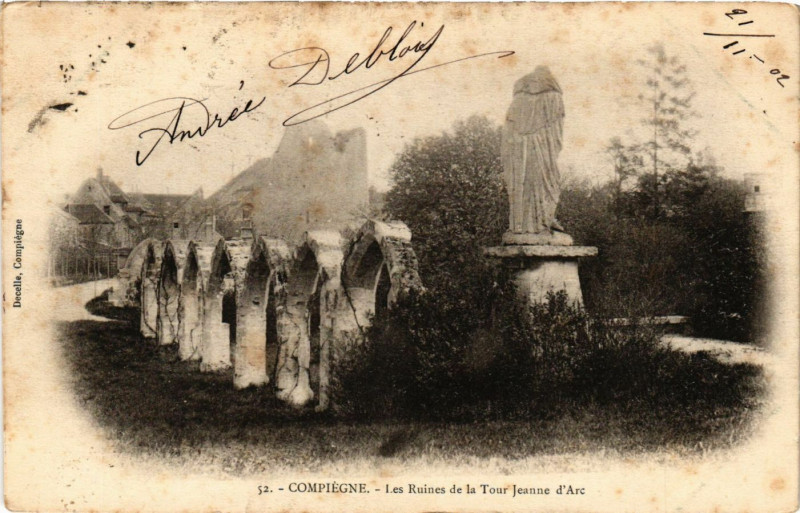 21-11-02
Andrée Deblois
Decelle, Compiègne
52. - COMPIÈGNE. - Les Ruines de la Tour Jeanne d'Arc